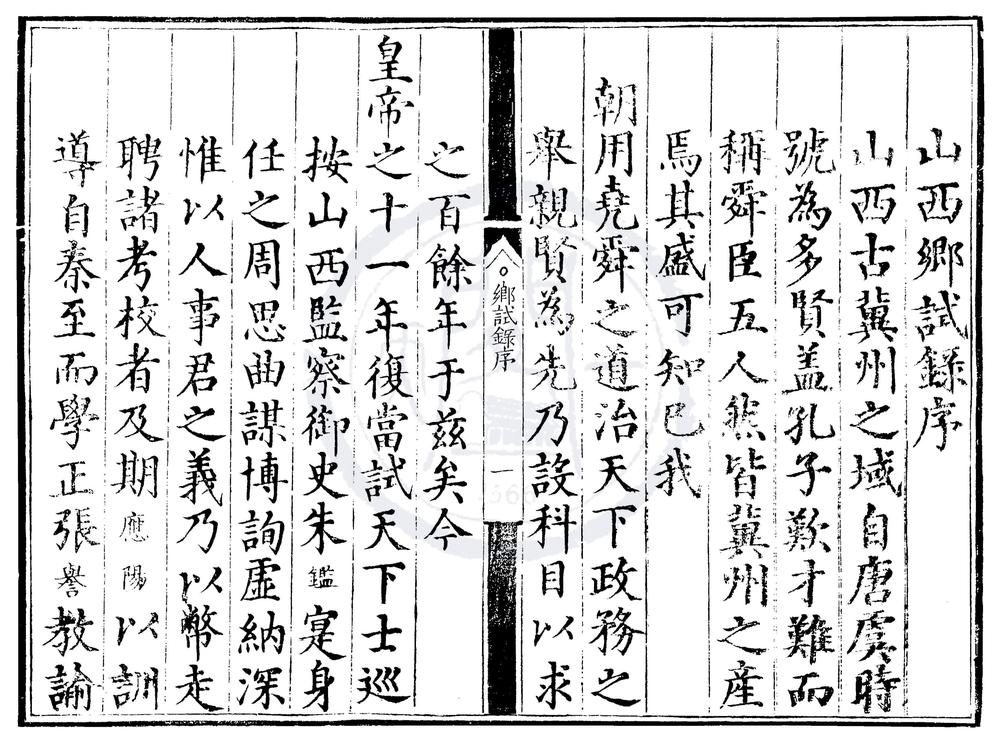 山西鄉試錄序
山西古冀州之域自唐虞時
號為多賢盖孔子歎才難而
稱舜臣五人然皆冀州之產
焉其盛可知已我
朝用堯舜之道治天下政務之
舉親賢為先乃設科目以求
鄉試錄序
一
之百餘年于茲矣今
皇帝之十一年復當試天下士巡
按山西監察御史朱鑑寔身
任之周思曲謀博詢虛納深
惟以人事君之義乃以幣走
聘諸考校者及期應陽以訓
導自秦至而學正張譽教諭